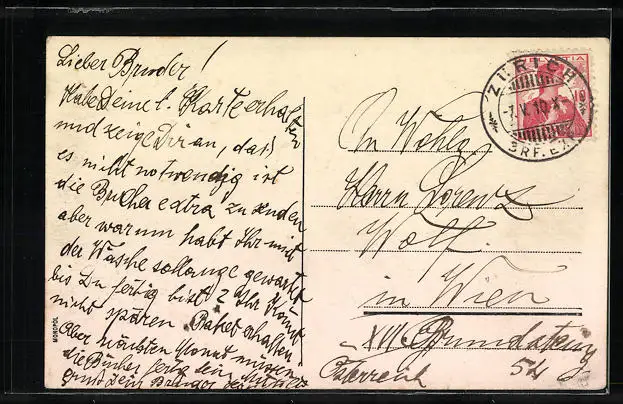 Lieber Bruder!
Habe Deine l. Karte erhalten
und zeige Dir an, dass
es nicht notwendig ist
die Bücher extra zu senden
aber warum habt Ihr mit
der Wäshe solange gewartet
bis Du fertig bist? Ihr könnt
nicht sparen. Paket erhalten.
Aber nächsten Monat müssen
die Bücher fertig sein.
Dein Bruder
MONOPOL
ZÜRICH
7.V.10.X
BRF. EX.
HELVETIA
10
An Wohlg.
Herrn Lorenz
Wolf.
in Wien
XVI Grundsteing
54
Österreich